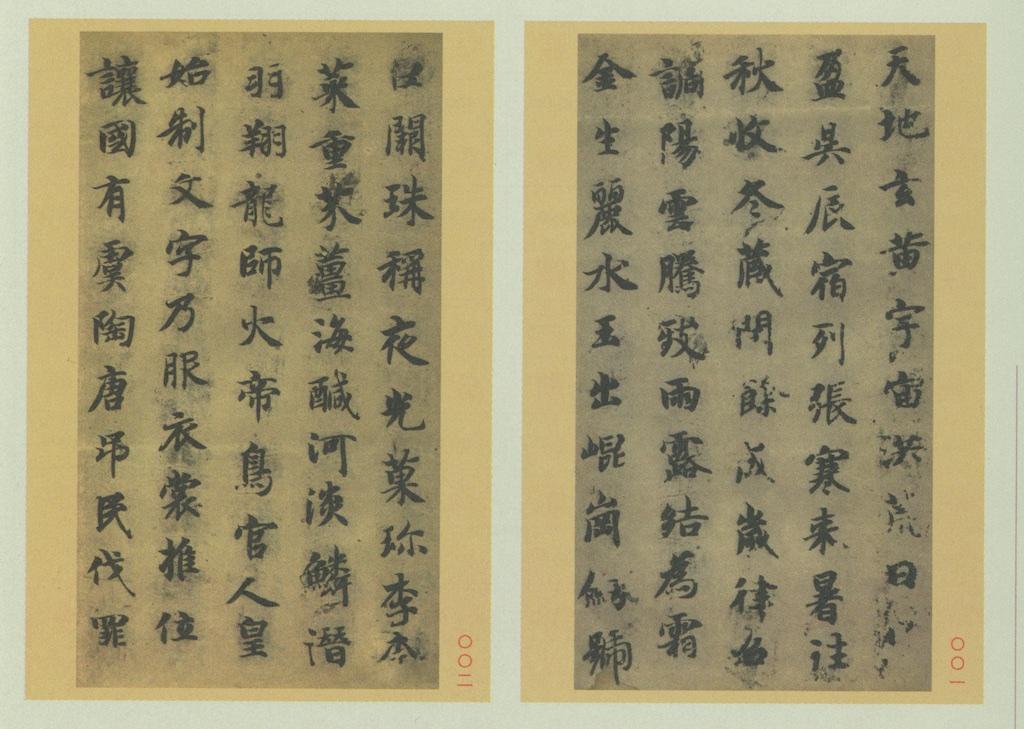 天地玄黄宇宙洪荒日月
盈昃辰宿列張寒来暑往
秋收冬藏閏餘成歲律召
調陽雲騰致雨露結為霜
金生麗水玉出崐崗劒號
〇〇一
巨闕珠稱夜光菓珎李柰
菜重芥薑海醎河淡鱗潛
羽翔龍師火帝鳥官人皇
始制文字乃服衣裳推位
讓國有虞陶唐弔民伐罪
〇〇二